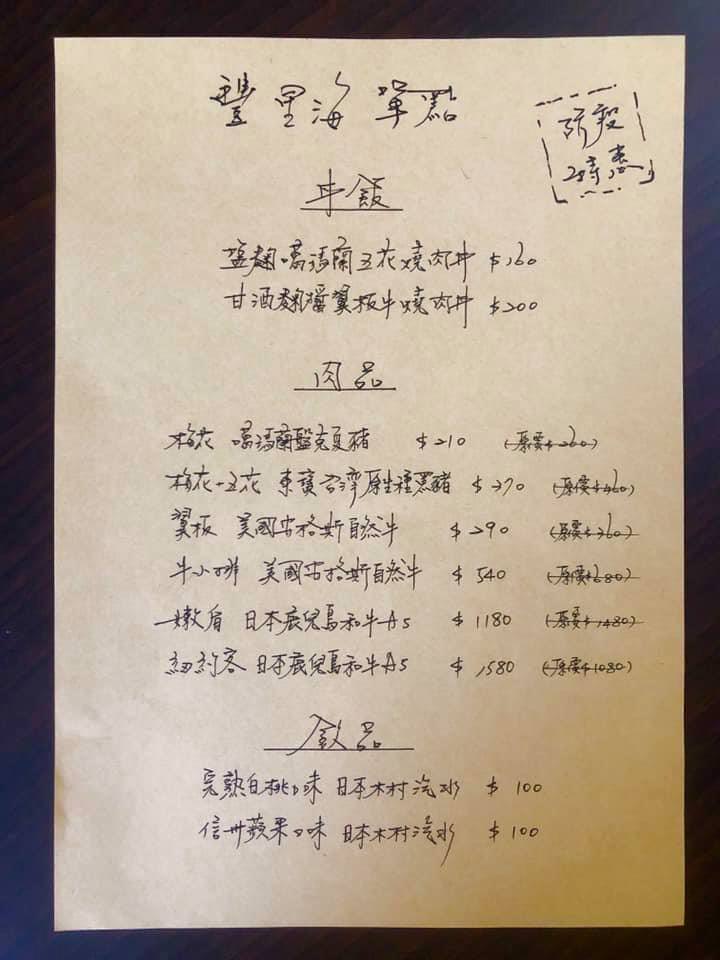 豐星海單點
防疫
特惠
丼飯
鹽麴噶瑪蘭五花燒肉丼 $160
甘酒麴翼板牛燒肉丼 $200
肉品
梅花 噶瑪蘭盤克夏豬 $210 (原價$260)
梅花、五花 東寶台灣原生種黑豬 $370 (原價$460)
翼板 美國安格斯自然牛 $290 (原價$360)
牛小排 美國安格斯自然牛 $540 (原價$680)
嫩肩 日本鹿兒島和牛A5 $1180 (原價$1480)
紐約客 日本鹿兒島和牛A5 $1580 (原價$1080)
飲品
完熟白桃口味 日本木村汽水 $100
信州蘋果口味 日本木村汽水 $100